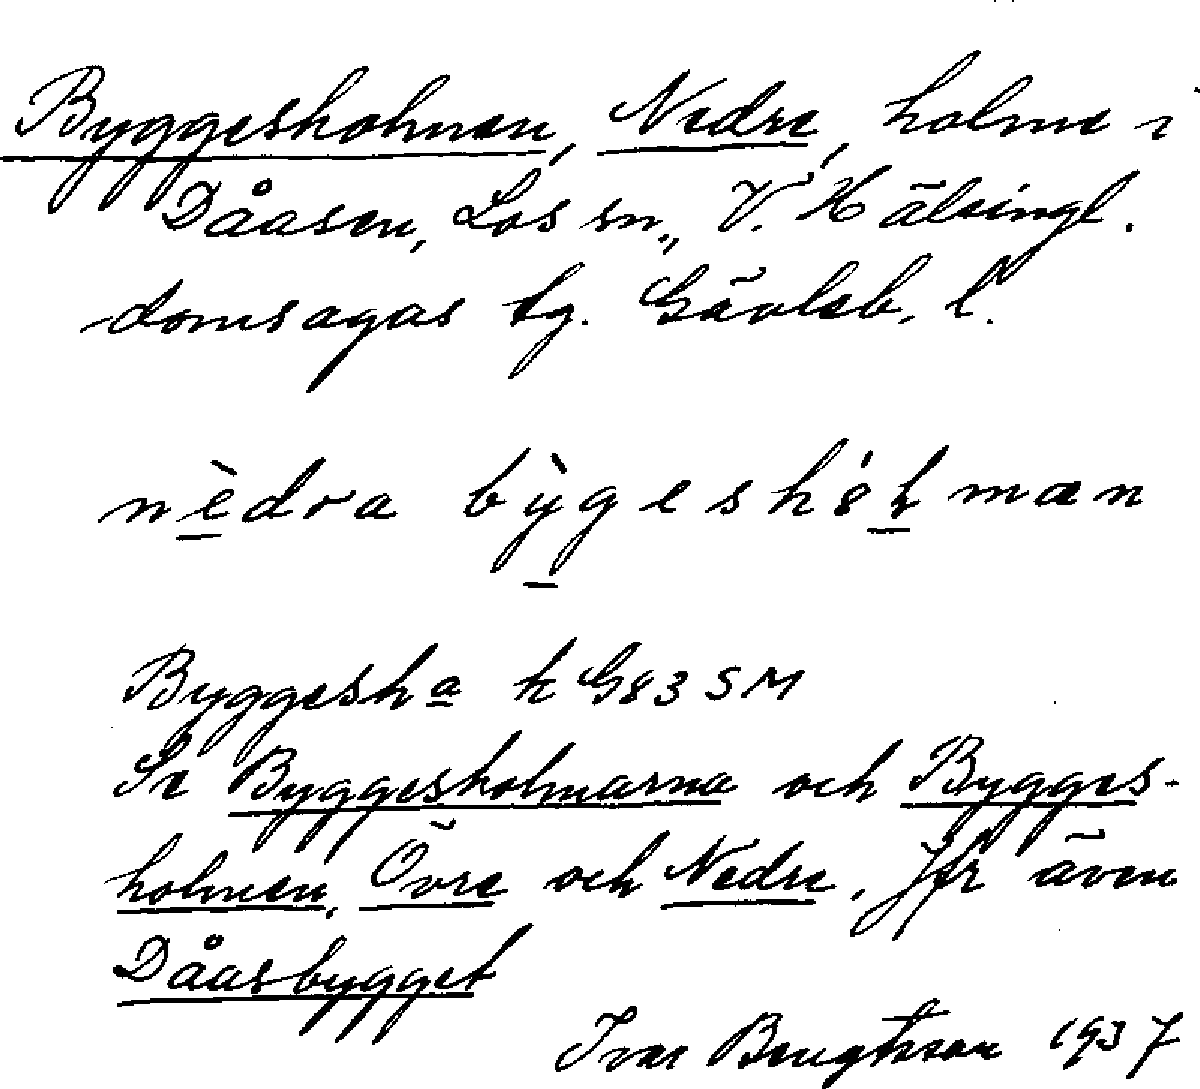 Byggesholmen, Nedre, holme i
Dåasen, Los sn., V. Hälsingl.
domsagas tg. Gävleb. l.
nèdra bỳgeshól man
Byggesha k G83 SM
Se Byggesholmarna och Bygges-
holmen, Övre och Nedre, Jfr även
Dåasbygget
Ivar Bengtsson 1937